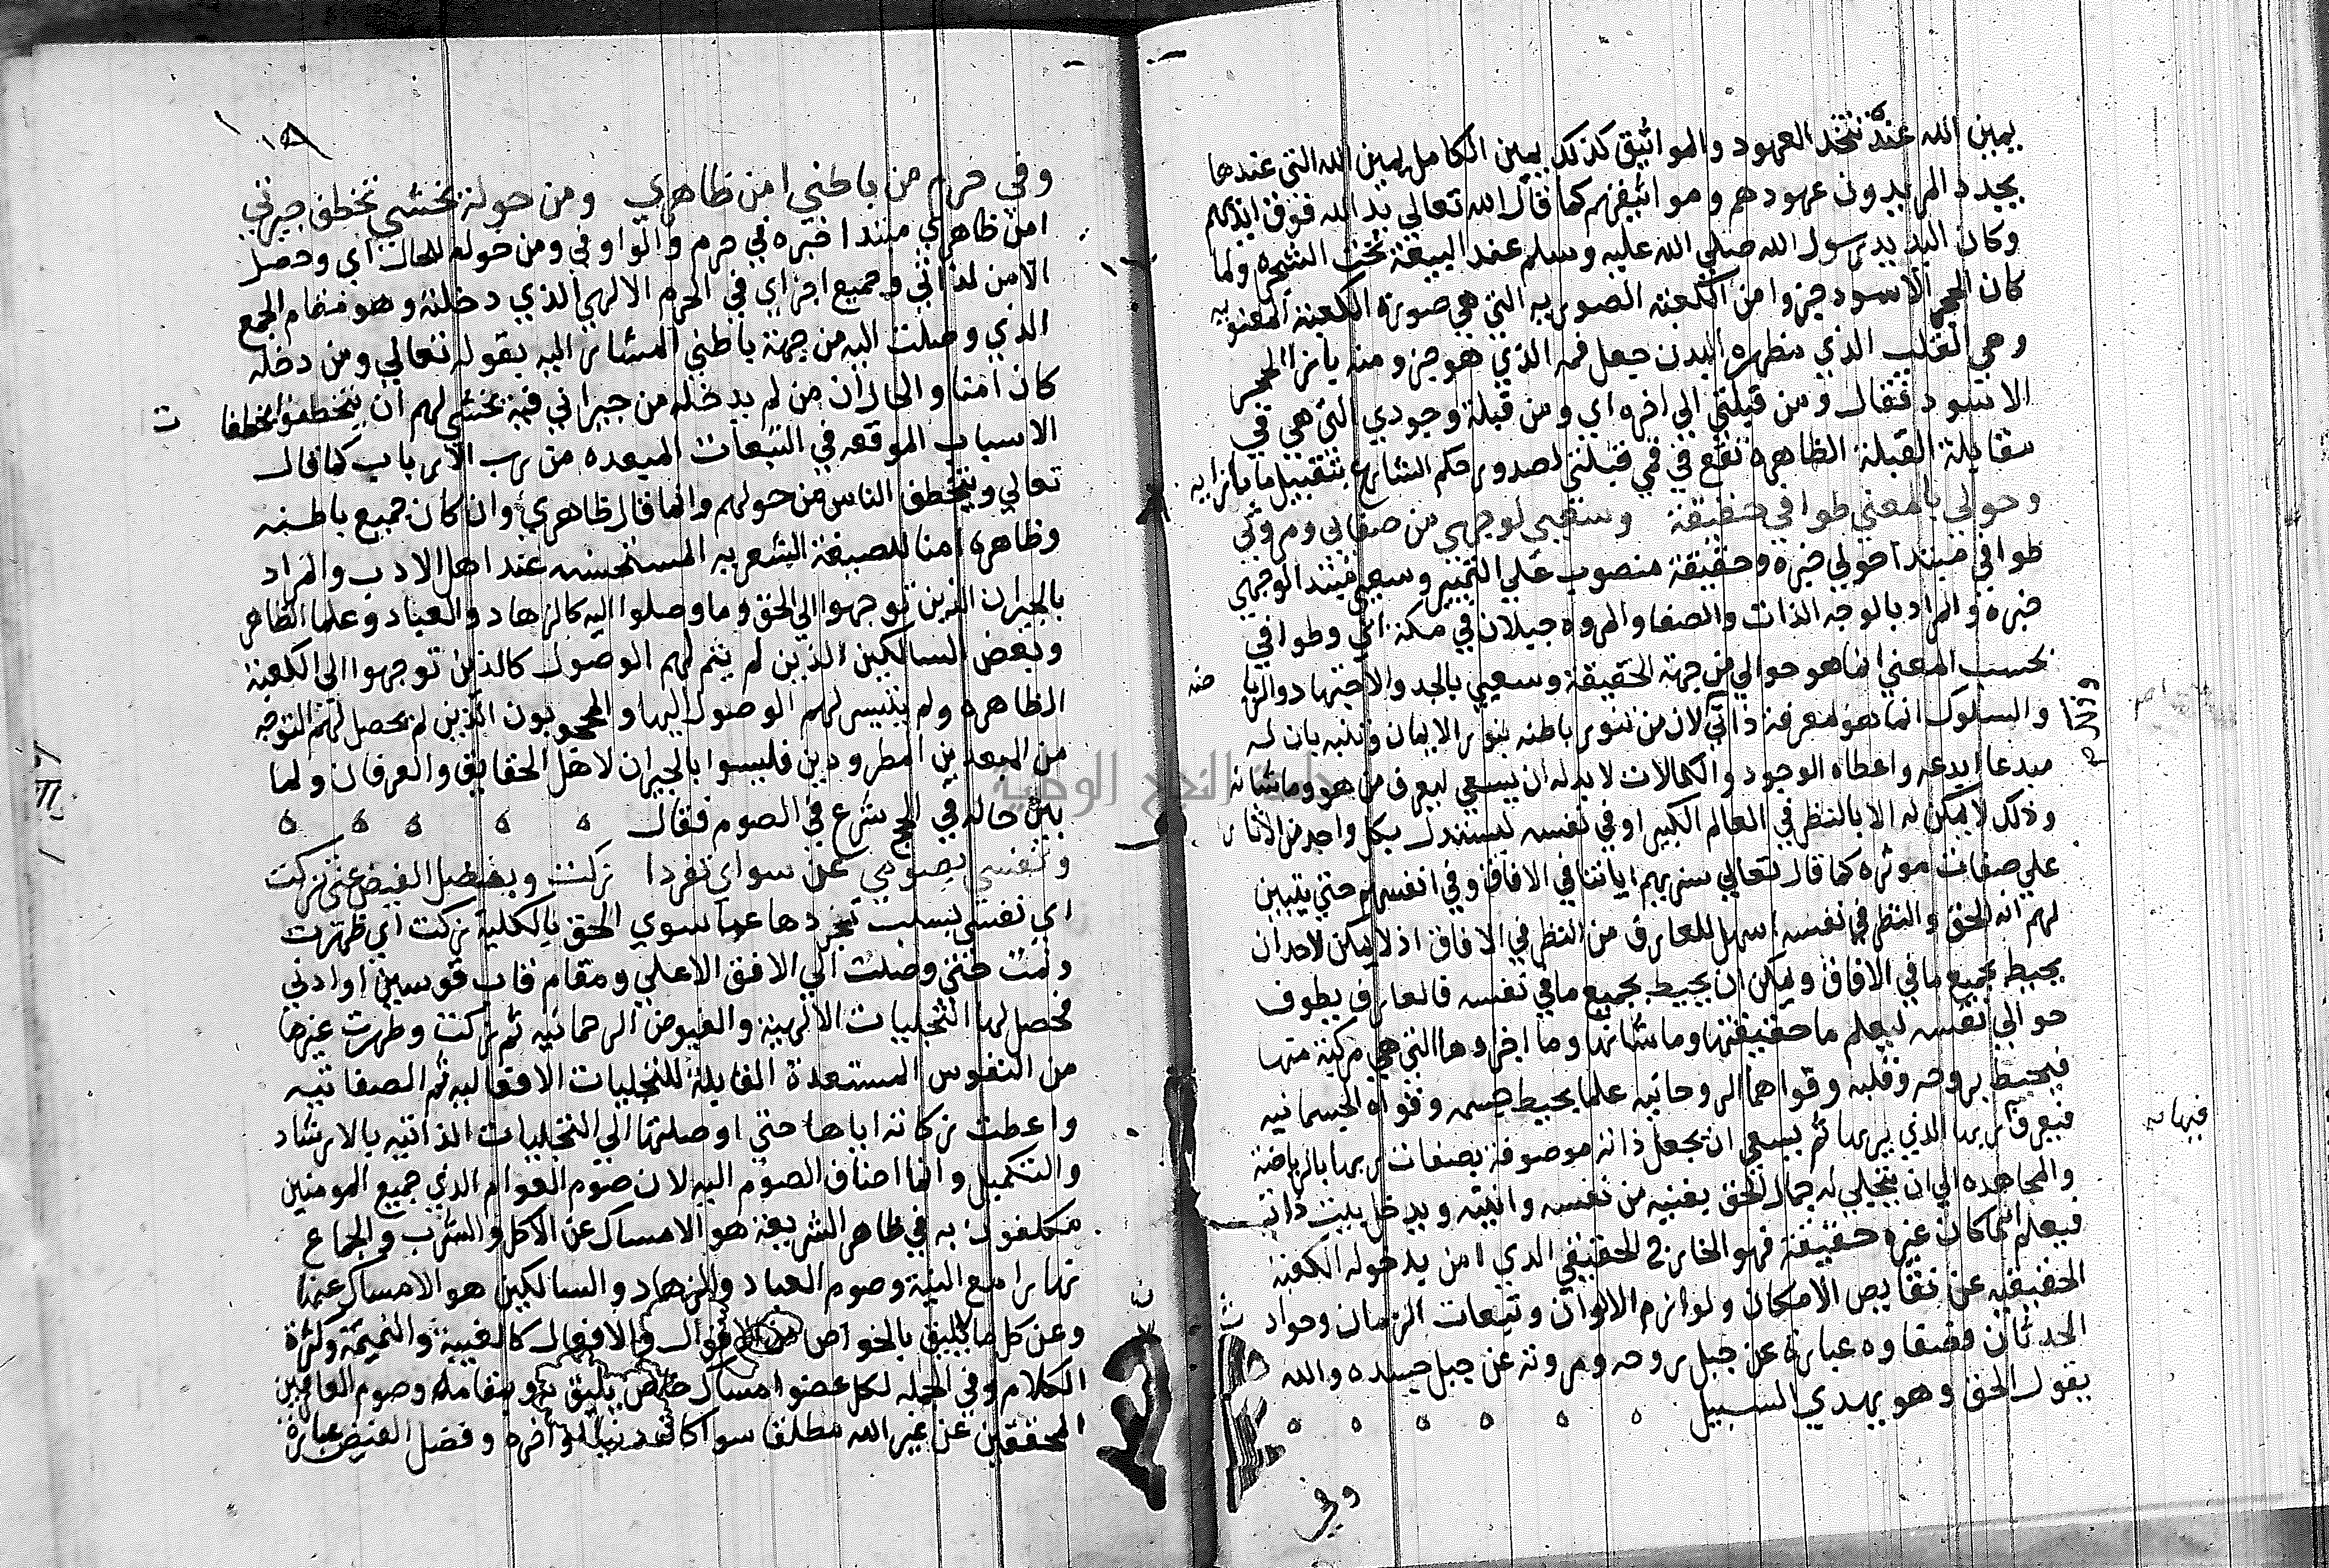 يمين الله عنده نتخذ العهود والمواثيق كذلك يمين الكامل يمين الله التي عندها
يجدد المريدون عهودهم ومواثيقهم كما قال الله تعالي يد الله فوق ايديهم
وكان اليد يد رسول الله صلي الله عليه وسلم عند البيعة تحت الشجره ولما
كان الحجر الاسود جزوا من الكعبة الصوريه التي هي صورة الكعبة المعنويه
وهي القلب الذي مظهره البدن جعل فمه الذي هو جزو منه بازا الحجر
الاسود فقال ومن قبلتي الي اخره اي ومن قبلة وجودي التي هي في
مقابلة القبلة الظاهره تقع في فمي قبلتي لصدور حكم الشارع بتقبيل ما بازايه
وحولي بالمعني طوافي حقيقة وسعيي لوجهي من صفاي ومروتي
طوافي مبتدا حولي خبره وحقيقة منصوب علي التمييز وسعيي مبتدا لوجهي
خبره والمراد بالوجه الذات والصفا والمروه جبلان في مكة اي وطوافي
بحسب المعني انما هو حوالي من جهة الحقيقة وسعيي بالجد والاجتهاد والريا ضه
والسلوك انما هو لمعرفة ذاتي لان من تنور باطنه بنور الايمان وتنبه بان له
مبدعا ابدعه واعطاه الوجود والكمالات لا بد له ان يسعي ليعرف من هو وما شانه
وذلك لا يمكن له الا بالنظر في العالم الكبير او في نفسه ليستدل بكل واحد من الاثار
علي صفات موثره كما قال تعالي سنريهم اياتنا في الافاق وفي انفسهم حتي يتبين
لهم انه الحق والنظر في نفسه اسهل للعارف من النظر في الافاق اذ لا يمكن لاحد ان
يحيط بجميع ما في الافاق ويمكن ان يحيط بجميع ما في نفسه فالعارف يطوف
حوالي نفسه ليعلم ما حقيقتها وما شانها وما اجزاوها التي هي مركبة منها
فيحيط بروحه وقلبه وقواهما الروحانيه علما يحيط جسمه وقواه الجسمانيه
فيعرف ربها الذي يربها ثم يسعي ان يجعل ذاته موصوفة بصفات ربها بالرياضة
والمجاهده الي ان يتجلي له جمال الحق يفنيه من نفسه وانيته ويدخل بيت ذاته
فيعلم انه ما كان غيره حقيقة فهو الحاج الحقيقي الذي امن بدخوله الكعبة
الحقيقيه عن نقايص الامكان ولوازم الالوان وتبعات الزمان وحواد ث
الحدثان فصفاوه عبارة عن جبل روحه ومروته عن جبل جسده والله
يقول الحق وهو يهدي السبيل
فيها نه
وفي
وفي حرم من باطني امن ظاهري ومن حوله يخشي تخطف جيرتي
امن ظاهري مبتدا خبره في حرم والواو في ومن حوله للحال اي وحصل
الامن لذاتي وجميع اجزاي في الحرم الالهي الذي دخلته وهو مقام الجمع
الذي وصلت اليه من جهة باطني المشار اليه بقوله تعالي ومن دخله
كان امنا والحال ان من لم يدخله من جيراني فيه يخشي لهم ان يتخطفوا بخطفا ت
الاسباب الموقعه في التبعات المبعده من رب الارباب كما قال
تعالي ويتخطف الناس من حولهم وانما قال ظاهري وان كان جميع باطنه
وظاهره امنا للصيغة الشعريه المستحسنه عند اهل الادب والمراد
بالجيران الذين توجهوا الي الحق وما وصلوا اليه كالزهاد والعباد وعلما الظاهر
وبعض السالكين الذين لم يتم لهم الوصول كالذين توجهوا الي الكعبة
الظاهره ولم يتيسر لهم الوصول اليها والمحجوبون الذين لم يحصل لهم التوجه
من المبعدين المطرودين فليسوا بالجيران لاهل الحقايق والعرفان ولما
بين حاله في الحج شرع في الصوم فقال
ونفسي بصومي عن سواي تفردا زكت وبفضل الفيض عني زكت
اي نفسي بسبب تجردها عما سوي الحق بالكلية زكت اي طهرت
ونمت حتي وصلت الي الافق الاعلي ومقام قاب قوسين او ادني
فحصل لها التجليات الالهية والفيوض الرحمانيه ثم زكت وطهرت غيرها
من النفوس المستعدة القابلة للتجليات الافعاليه ثم الصفاتيه
واعطت زكاته اياها حتي اوصلتها الي التجليات الذاتيه بالارشاد
والتكميل وانما اضاف الصوم اليه لان صوم العوام الذي جميع المومنين
مكلفون به في ظاهر الشريعة هو الامساك عن الاكل والشرب والجماع
نهارا مع النية وصوم العباد والزهاد والسالكين هو الامساك عنها
وعن كل ما لا يليق بالخواص من الاقوال والافعال كالغيبة والنميمة وكثرة
الكلام وفي الجمله لكل عضو امساك خاص يليق به وبمقامه وصوم العارفين
المحققين عن غير الله مطلقا سوا كان دنيا او اخره وفضل الفيض عبارة